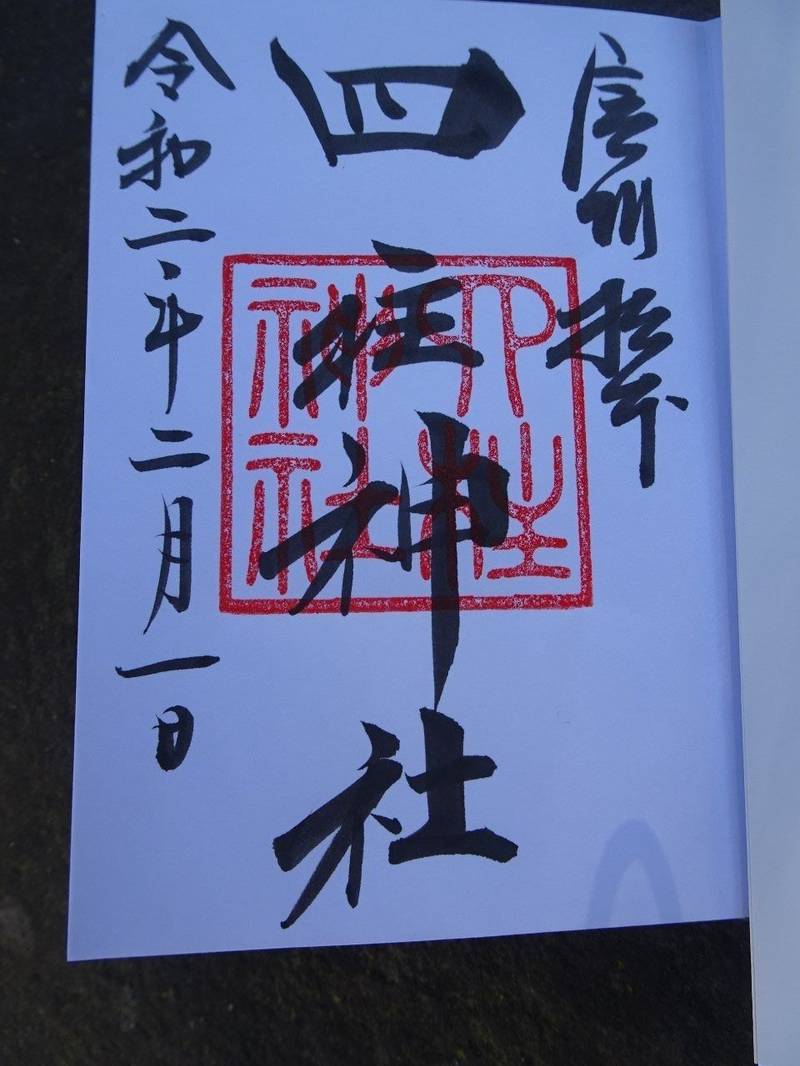 信州松本
四柱神社
四柱神社
令和二年二月一日